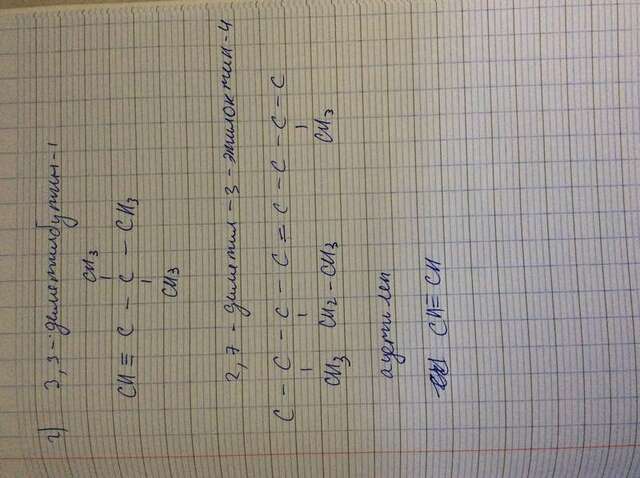 г) 3,3-диметилбутин-1
CH3
CH ≡ C - C - CH3
CH3
2,7-диметил-3-этилоктин-4
C - C - C - C = C - C - C - C
CH3 CH2 - CH3 CH3
ацетилен
CH ≡ CH